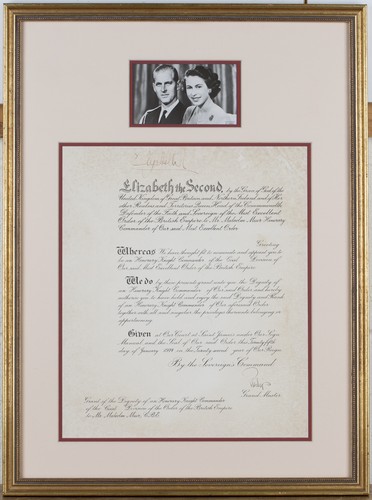 Elizabeth R
Elizabeth the Second, by the Grace of God of the
United Kingdom of Great Britain and Northern Ireland and of Her
other Realms and Territories Queen, Head of the Commonwealth,
Defender of the Faith and Sovereign of the Most Excellent
Order of the British Empire to Mr Malcolm Muir Honorary
Commander of Our said Most Excellent Order
Greeting
Whereas We have thought fit to nominate and appoint you to
be an Honorary Knight Commander of the Civil Division of
Our said Most Excellent Order of the British Empire
We do by these presents grant unto you the Dignity of
an Honorary Knight Commander of Our said Order and hereby
authorise you to have hold and enjoy the said Dignity and Rank
of an Honorary Knight Commander of Our aforesaid Order
together with all and singular the privileges thereunto belonging or
appertaining.
Given at Our Court at Saint James's under Our Sign
Manual and the Seal of Our said Order this Twenty-fifth
day of January in the Twenty year of Our Reign
By the Sovereign's Command
Grand Master
Grant of the Dignity of an Honorary Knight Commander
of the Civil Division of the Order of the British Empire
to Mr Malcolm Muir, C.B.E.